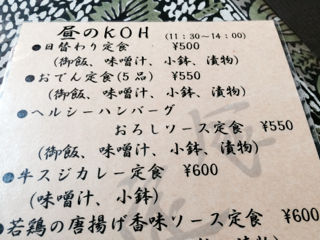 昼のKOH (11:30~14:00)
●日替わり定食 ¥500
(御飯、味噌汁、小鉢、漬物)
●おでん定食(5品) ¥550
(御飯、味噌汁、小鉢、漬物)
●ヘルシーハンバーグ
おろしソース定食 ¥550
(御飯、味噌汁、小鉢、漬物)
●牛スジカレー定食 ¥600
(味噌汁、小鉢)
●若鶏の唐揚げ香味ソース定食 ¥600
味噌汁、小鉢、漬物)